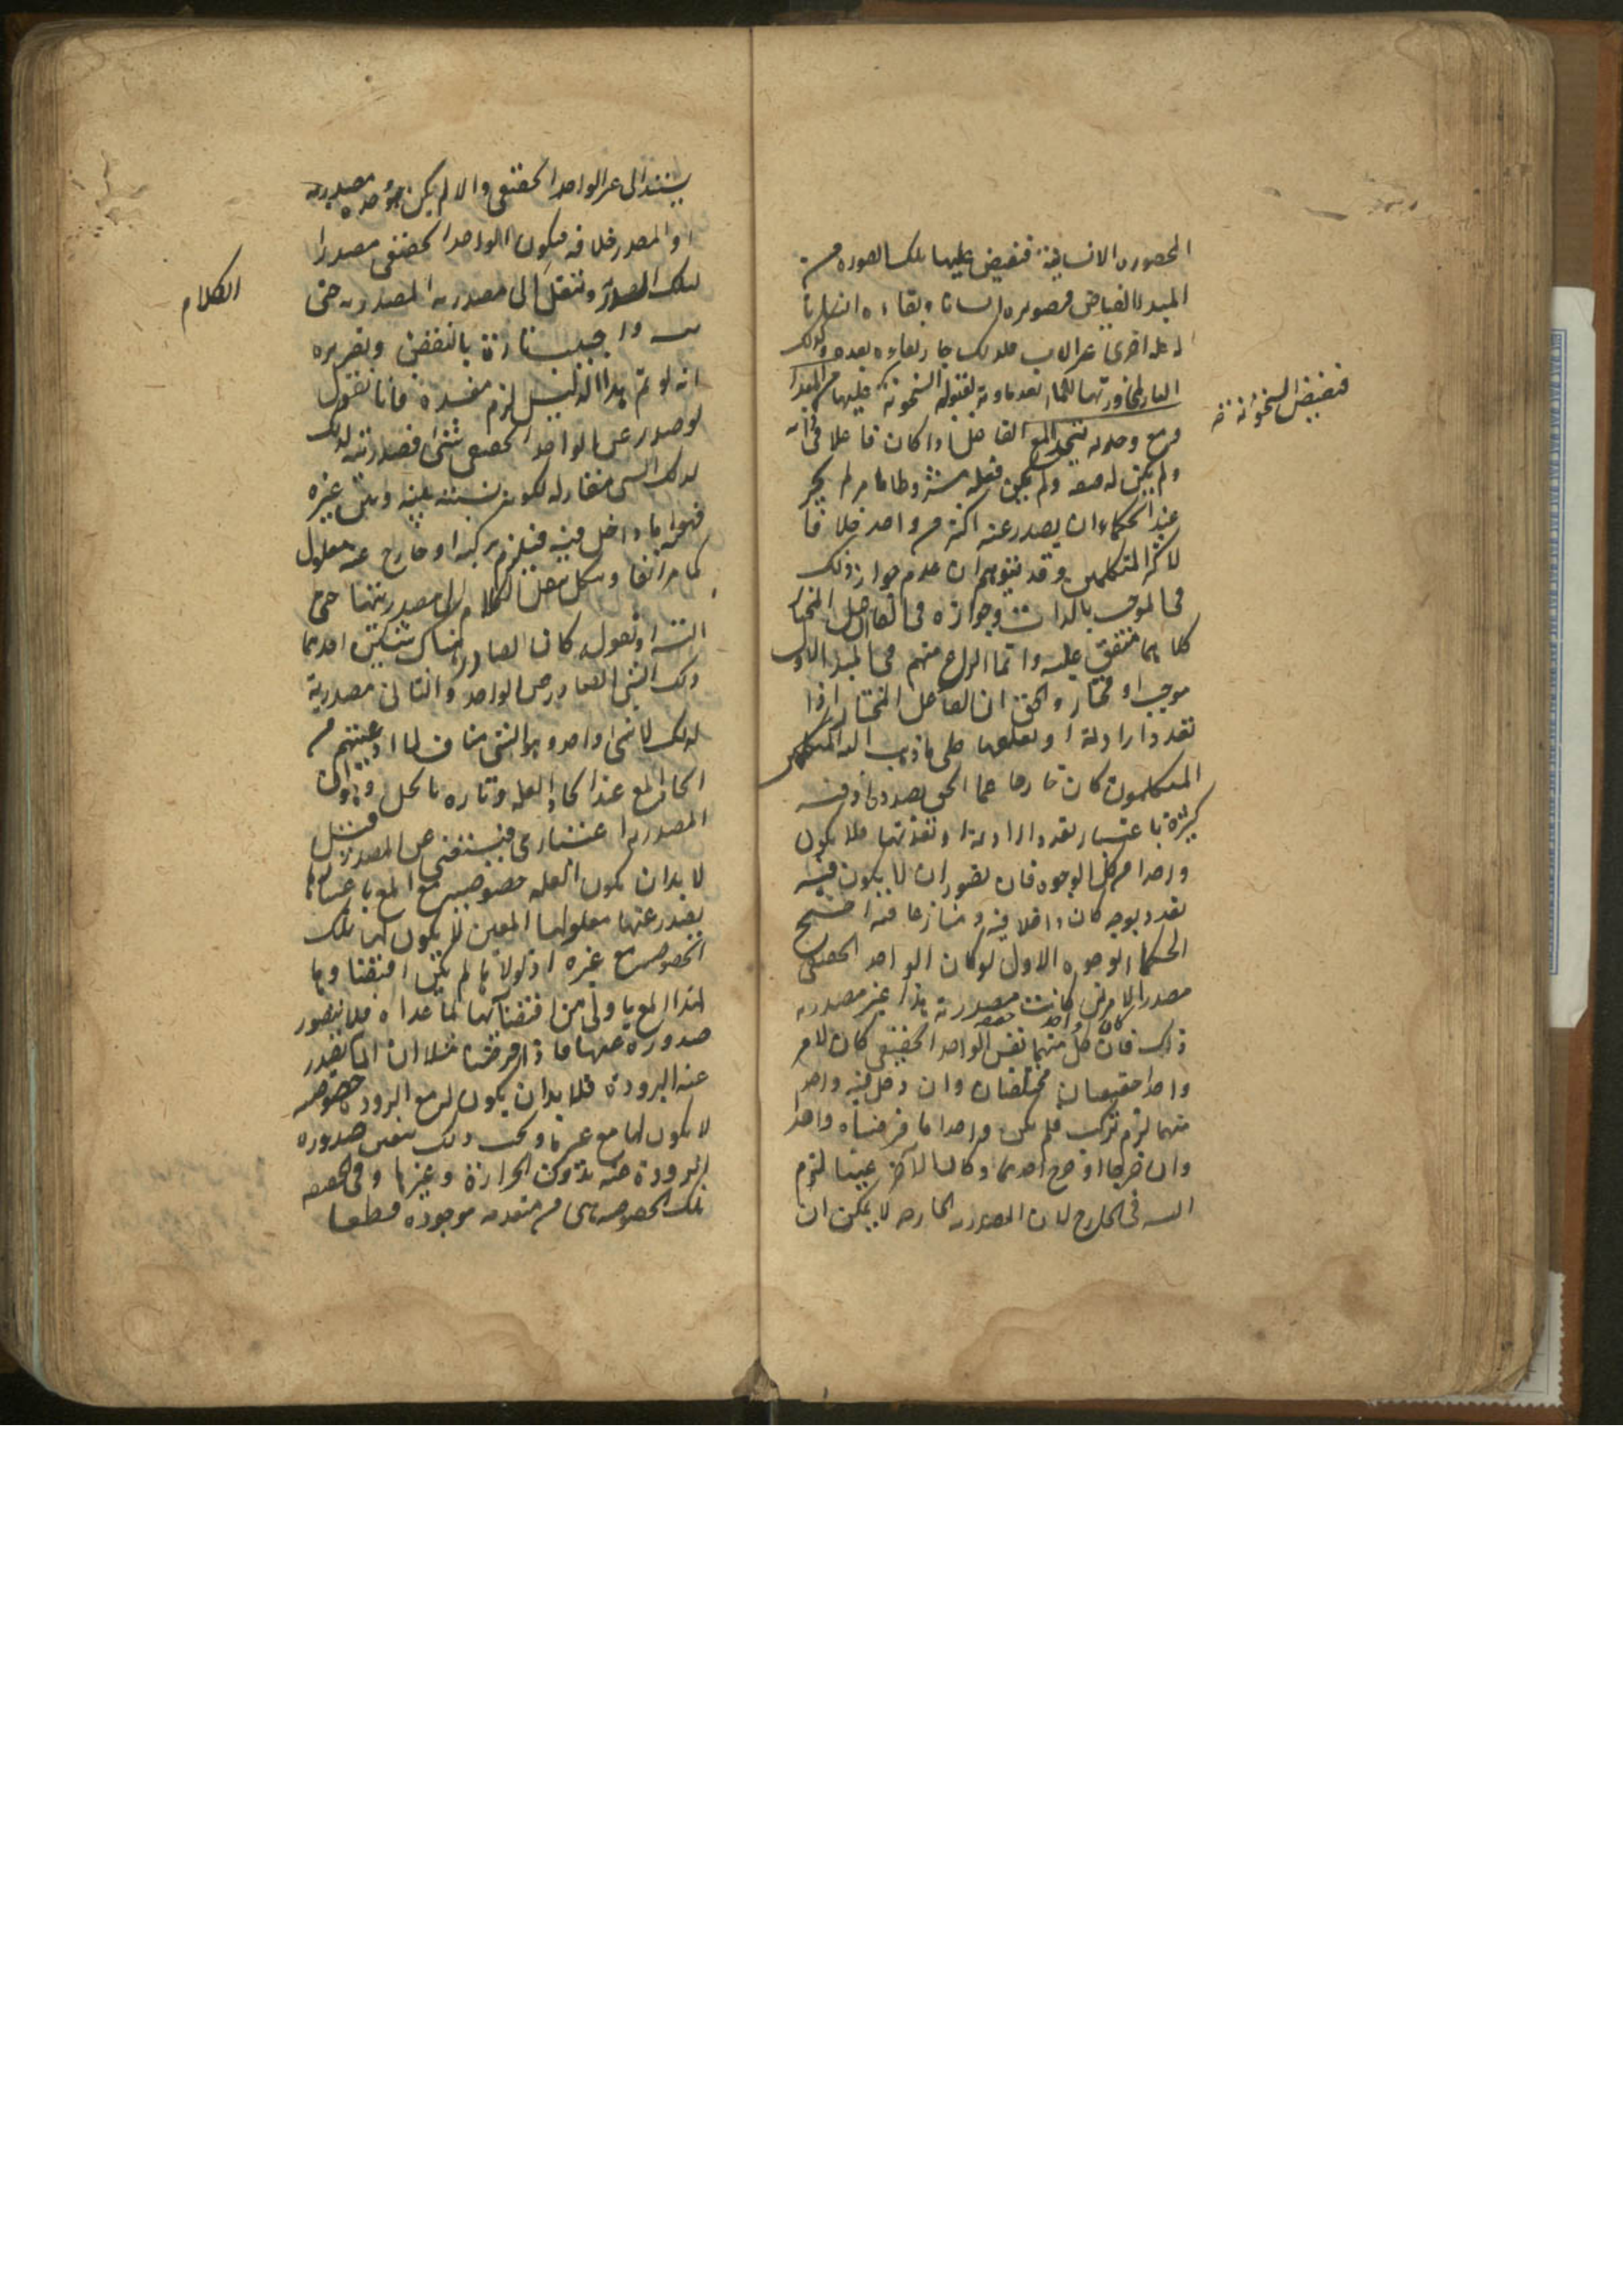 الصوره الانسانية فتفيض عليها تلك الصورة من
المبدا الفياض فصوره انسانا و بقاءه انسانا
له علة اخرى غير الاب فلذلك جاز بقاءه بعده وكذلك
النار لمجاورتها للماء تعد مادته لقبوله السخونة عليها من المبدا
فتفيض السخونة
مع وحدته يتحد المع الفاعل اذا كان فاعلا في ذاته
ولم يكن له صفة ولم يكن فعله مشروطا بامر لم يجز
عند الحكماء ان يصدر عنه اكثر من واحد خلافا
لاكثر المتكلمين وقد يتوهم ان عدم جواز ذلك
في الموجب بالذات وجوازه في الفاعل المختار
كلاهما متفق عليه وانما النزاع منهم في المبدا الاول
موجب او مختار والحق ان الفاعل المختار اذا
تعدد ارادته او تعلقها على ما ذهب اليه
المتكلمون كان خارجا عما نحن بصدده اذ فيه
كثرة باعتبار تعدد ارادته او تعلقها فلا يكون
واحدا من كل الوجوه فان تصور ان لا يكون فيه
تعدد بوجه كان داخلا فيه ومتنازعا فيه احتج
الحكماء بوجوه الاول لو كان الواحد الحقيقي
مصدرا لامرين كانت مصدرية هذا غير مصدرية
ذاك فان كان كل منهما نفس الواحد الحقيقي كان لامر
واحد حقيقتان مختلفتان وان دخل فيه واحد
منهما لزم تركبه فلم يكن واحدا ما فرضناه واحدا
وان خرجا او خرج احدهما وكان الآخر عينا لزم
التسلسل في الخارج لان المصدرية الخارجة لا يمكن ان
يستند الى غير الواحد الحقيقي والا لم يكن هو وحده مصدرا
والمصدر خلافه فيكون الواحد الحقيقي مصدرا
لتلك المصدرية وننقل الى مصدرية المصدرية حتى
الكلام
واجيب تارة بالنقض وتقريره
انه لو تم هذا الدليل لزم مفسدة فانا نقول
لو صدر عن الواحد الحقيقي شئ فمصدريته لذلك
لذلك الشئ مغاير له لكونه نسبة بينه وبين غيره
فهو اما داخل فيه فيلزم تركبه او خارج عنه معلول
كما مر انفا وننقل الكلام الى مصدريتها حتى
التسلسل او نقول كان الصادر هناك شيئين احدهما
ذلك الشئ الصادر عن الواحد والثاني مصدرية
لذلك الشئ واحد وهو الشئ مناف لما ادعيتم من
اتحاد المع عند اتحاد العلة وتارة بالحل وهو ان
المصدرية اعتباري فيستغني عن المصدر فنقل
لا بد ان يكون للعلة خصوصية مع المع باعتبارها
يصدر عنها معلولها المعين لا يكون لها تلك
الخصوصية مع غيره اذ لولاها لم يكن اقتضاؤها
لهذا المع باولى من اقتضائها لما عداه فلا يتصور
صدوره عنها فاذا فرضنا مثلا ان الماء يصدر
عنه البرودة فلا بد ان يكون له مع البرودة خصوصية
لا يكون لها مع غيرها وبحسب ذلك يتعين صدور
البرودة عنه دون الحرارة وغيرها وفي الحقيقة
تلك الخصوصية هي متقدمة موجودة قطعا